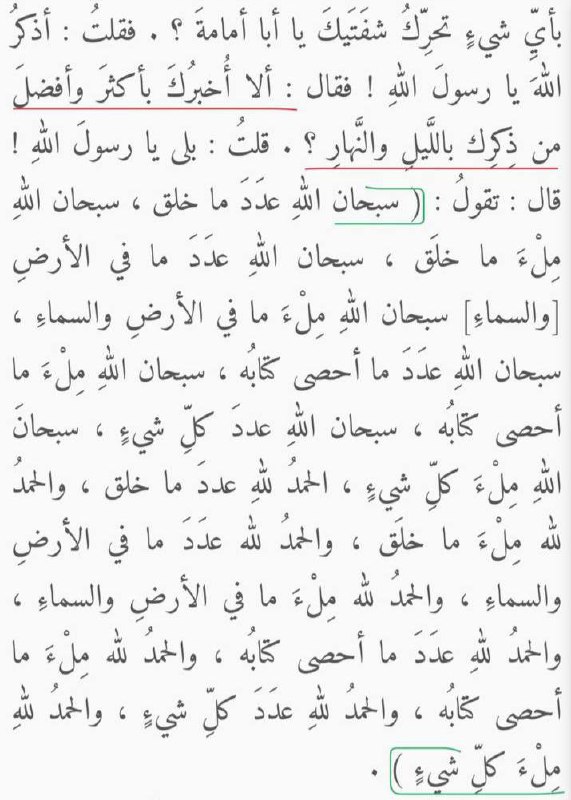 بأيِّ شيءٍ تحرِّكُ شفَتَيكَ يا أبا أمامةَ ؟ . فقلتُ : أذكرُ
اللهَ يا رسولَ اللهِ ! فقال : ألا أُخبرُكَ بأكثرَ وأفضلَ
من ذِكرِك باللَّيلِ والنَّهارِ ؟ . قلتُ : بلى يا رسولَ اللهِ !
قال : تقولُ : ( سبحان اللهِ عدَدَ ما خلق ، سبحان اللهِ
مِلْءَ ما خلَق ، سبحان اللهِ عدَدَ ما في الأرضِ
[والسماءِ] سبحان اللهِ مِلْءَ ما في الأرضِ والسماءِ ،
سبحان اللهِ عدَدَ ما أحصى كتابُه ، سبحان اللهِ مِلْءَ ما
أحصى كتابُه ، سبحان اللهِ عددَ كلِّ شيءٍ ، سبحانَ
اللهِ مِلْءَ كلِّ شيءٍ ، الحمدُ للهِ عددَ ما خلق ، والحمدُ
لله مِلْءَ ما خلَق ، والحمدُ لله عدَدَ ما في الأرضِ
والسماءِ ، والحمدُ لله مِلْءَ ما في الأرضِ والسماءِ ،
والحمدُ للهِ عدَدَ ما أحصى كتابُه ، والحمدُ لله مِلْءَ ما
أحصى كتابُه ، والحمدُ للهِ عدَدَ كلِّ شيءٍ ، والحمدُ للهِ
مِلْءَ كلِّ شيءٍ ) .